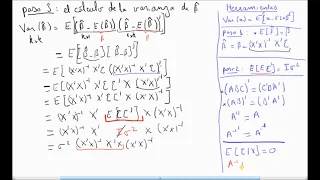 paso 3: el cálculo de la varianza de β̂
Var(β̂) = E[(β̂-E(β̂))(β̂-E(β̂))']
kxk kx1 β 1xk β
= E[(β̂-β)(β̂-β)']
= E[(X'X)⁻¹X'ε((X'X)⁻¹X'ε)']
= E[(X'X)⁻¹X'εε'X(X'X)⁻¹]
= (X'X)⁻¹X' E[εε'] X(X'X)⁻¹
= (X'X)⁻¹X' Iσ² X(X'X)⁻¹
= σ²(X'X)⁻¹X'X(X'X)⁻¹
Herramientas
paso 1:
β̂ = β + (X'X)⁻¹X'ε
paso 2: E[εε'] = Iσ²
(ABC)' = C'B'A'
E[ε|X] = 0
A⁻¹